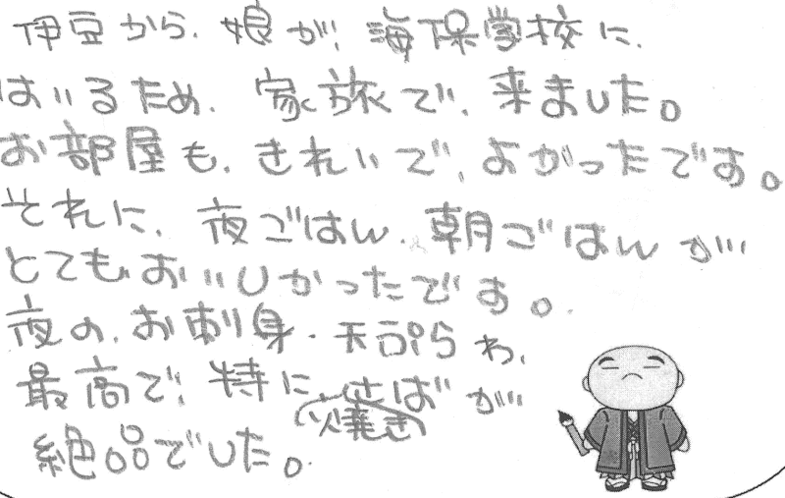 伊豆から、娘が、海保学校に、
はいるため、家族で、来ました。
お部屋も、きれいで、よかったです。
それに、夜ごはん、朝ごはんが
とてもおいしかったです。
夜の、お刺身・天ぷらわ、
最高で、特に さばが
(焼き)
絶品でした。